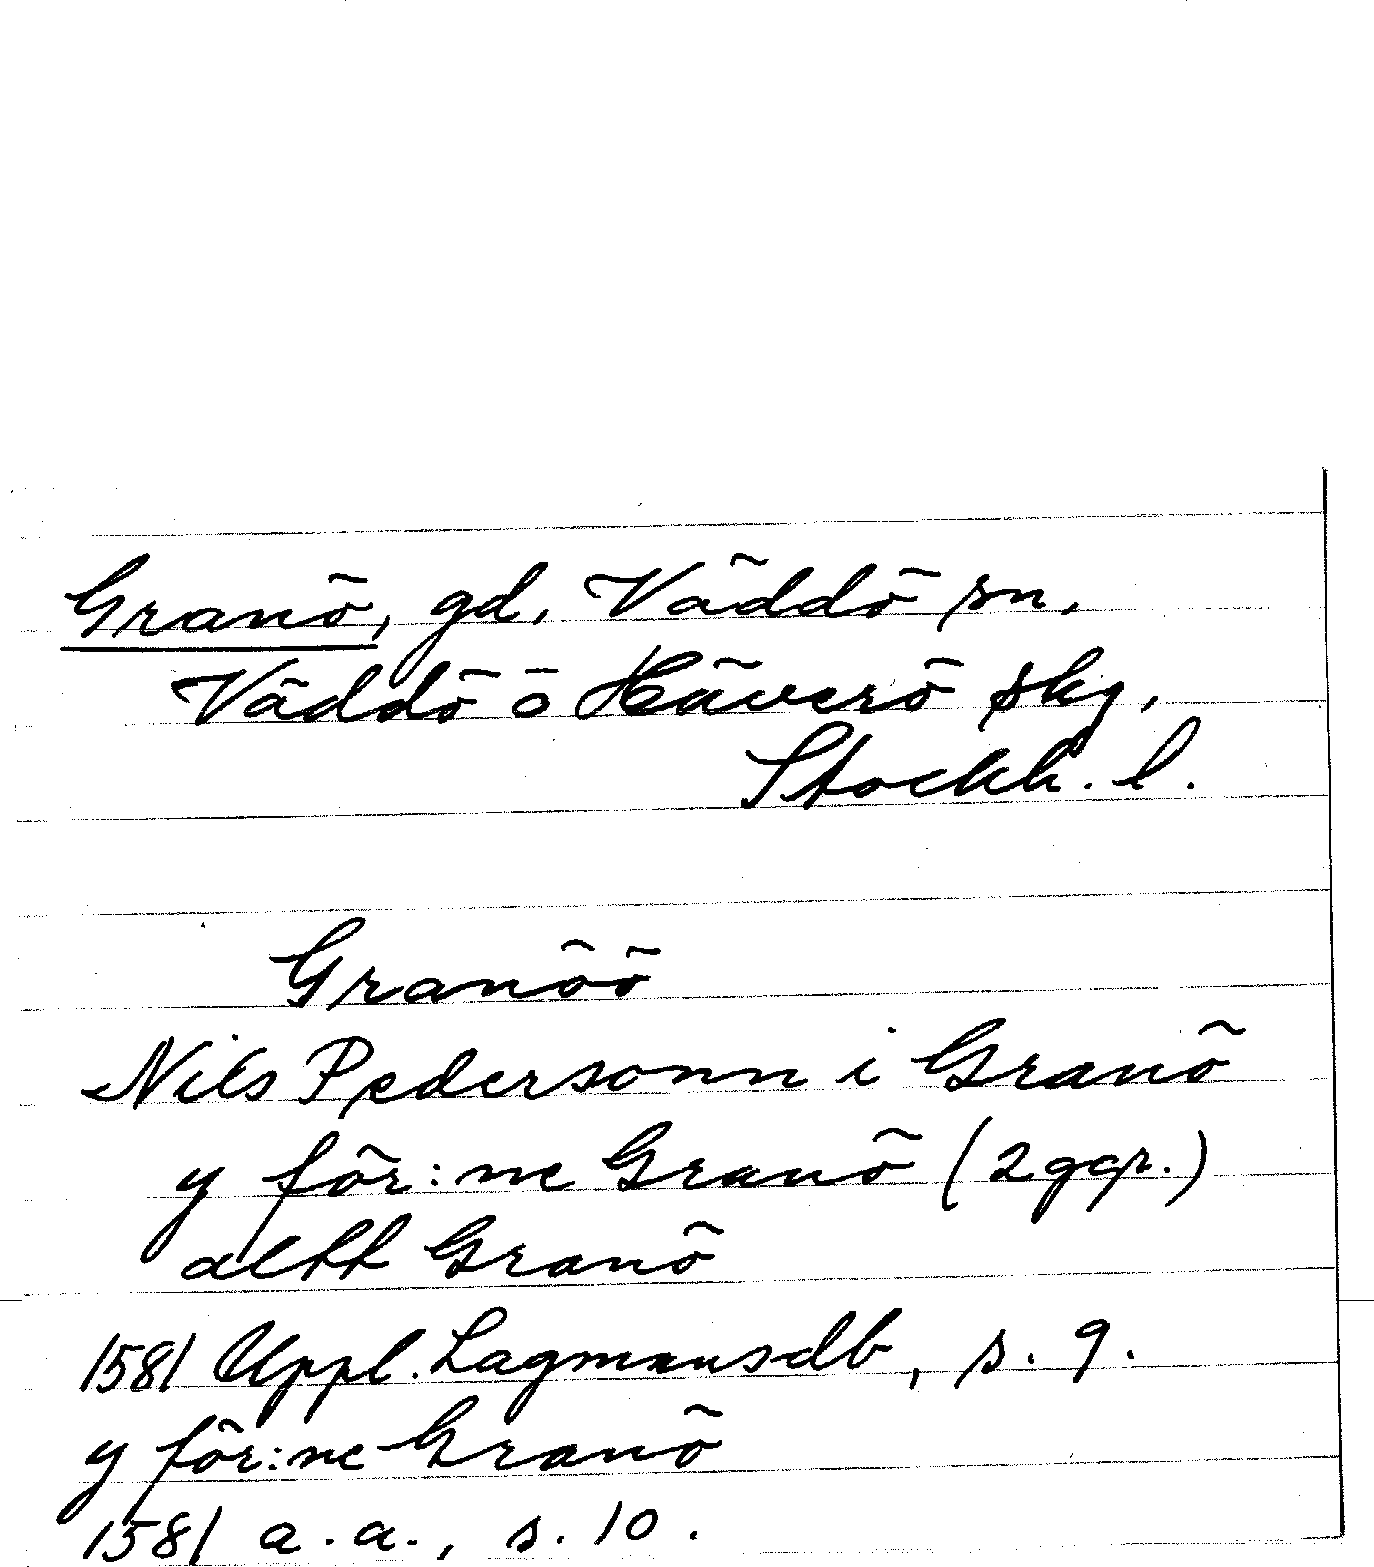 Granö, gd, Väddö sn,
Väddö o Häverö skg,
Stockh. l.
Granöö
Nils Pedersonn i Granö
y för:ne Granö (2 ggr.)
altt Granö
1581 Uppl. Lagmansdb, s. 9.
y för:ne Granö
1581 a.a., s. 10.